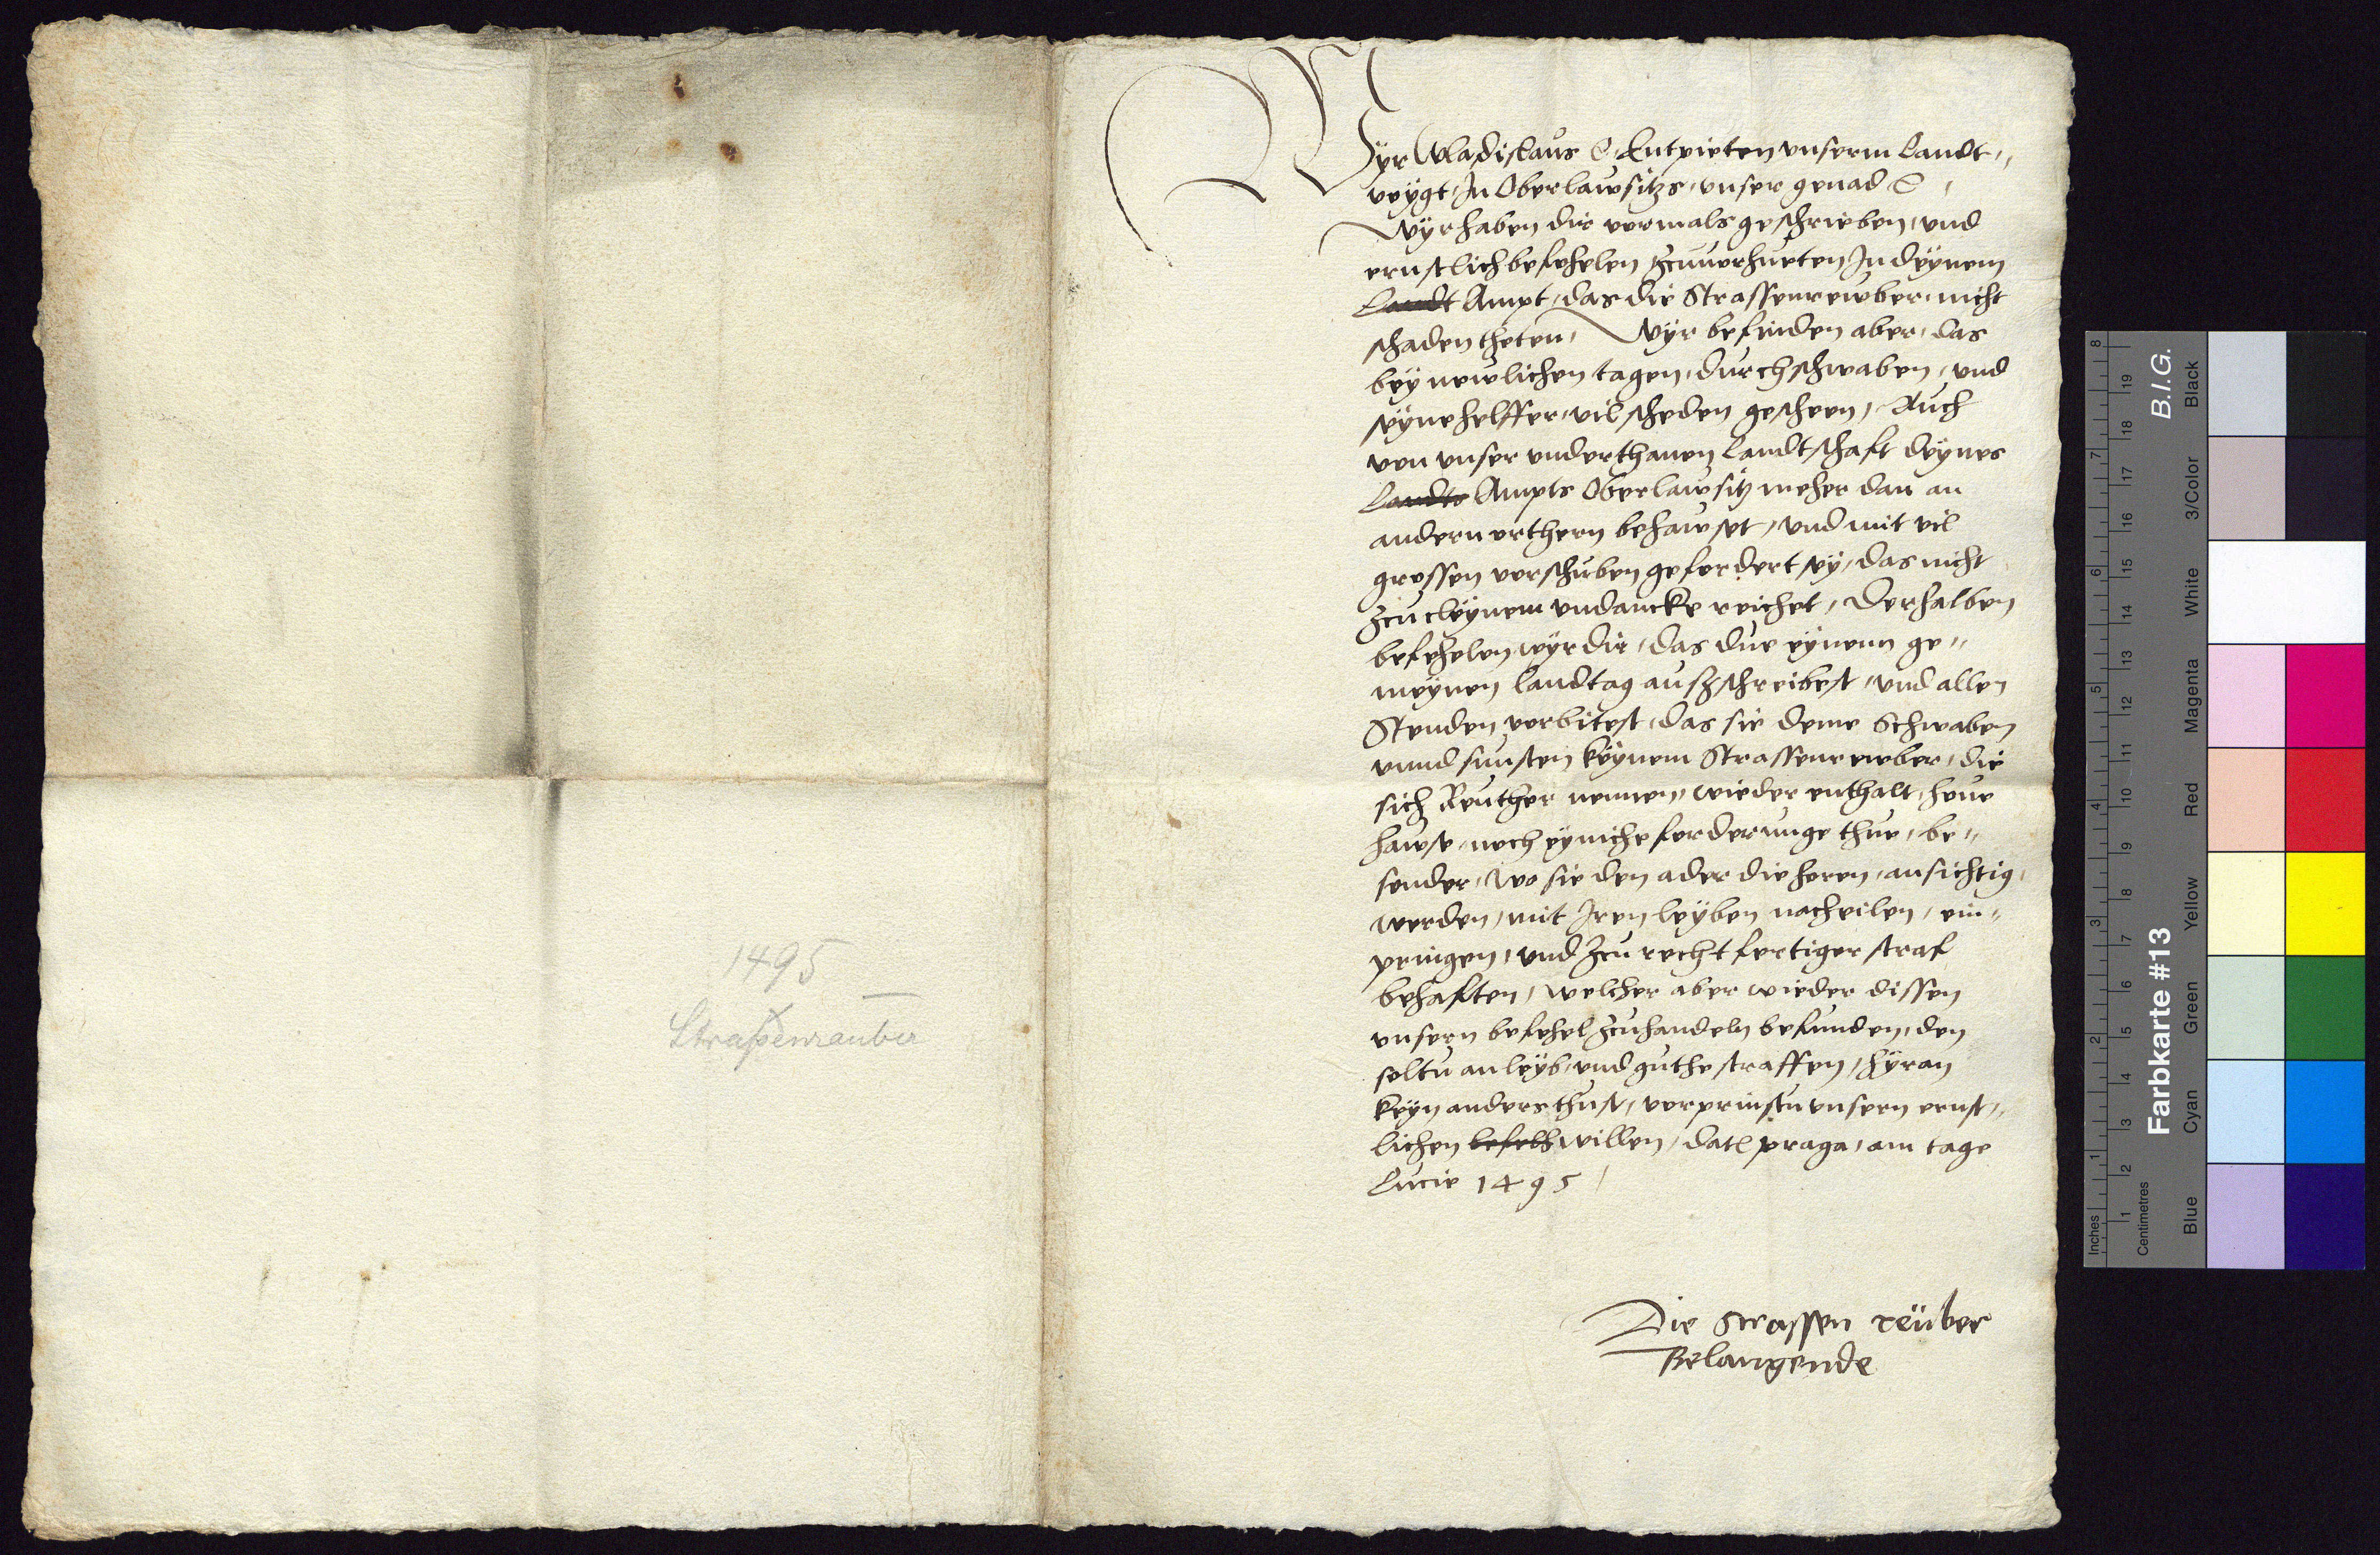 1495
Straßenrauber
Wyr Wladislaus &c Entpieten unserm Landt-
voygt In Oberlawsitz, unser genad &c,
Wyr haben dir vormals geschrieben, und
ernstlich befehelen zcuuerhueten In deynem
Landt Ampt, das die Strassenrewber, nicht
schaden theten, Wyr befinden aber, das
bey newlichen tagen, durch schwaben, und
seyne helffer, vil scheden gescheen, Auch
von unser underthanen Landtschaft deynes
Landts Ampts Oberlawsitz meher dan an
andern orthern behawset, und mit vil
grossen vorschuben gefordert sey, das nicht
zcu cleynem undancke reichet, Derhalben
befehelen wyr dir, das due eynenn ge-
meynen landtag außschreibest, und allen
Stenden vorbitest, das sie deme Schwaben
unnd sunsten keynem Strassenrewber, die
sich Reuther nennen, wieder enthalt, heue
hawse, noch eyniche forderunge thue, be-
sonder, Wo sie den ader die heren, ansichtig
werden, mit Iren leyben nacheilen, ein-
pringen, und zcu rechtfertiger straf
behaften, welcher aber wieder dissen
unsern befehel zcuhandeln befunden, den
soltu an leyb, und guthe straffen, hyran
keyn anders thust, vorprinstu unsern ernst-
lichen befelh willen, dat praga, am tage
Lucie 1495
Die Strassen reuber
Belangende
Inches
Centimetres
Farbkarte #13
B.I.G.
Blue Cyan Green Yellow Red Magenta White 3/Color Black
1 2 3 4 5 6 7 8
1 2 3 4 5 6 7 8 9 10 11 12 13 14 15 16 17 18 19